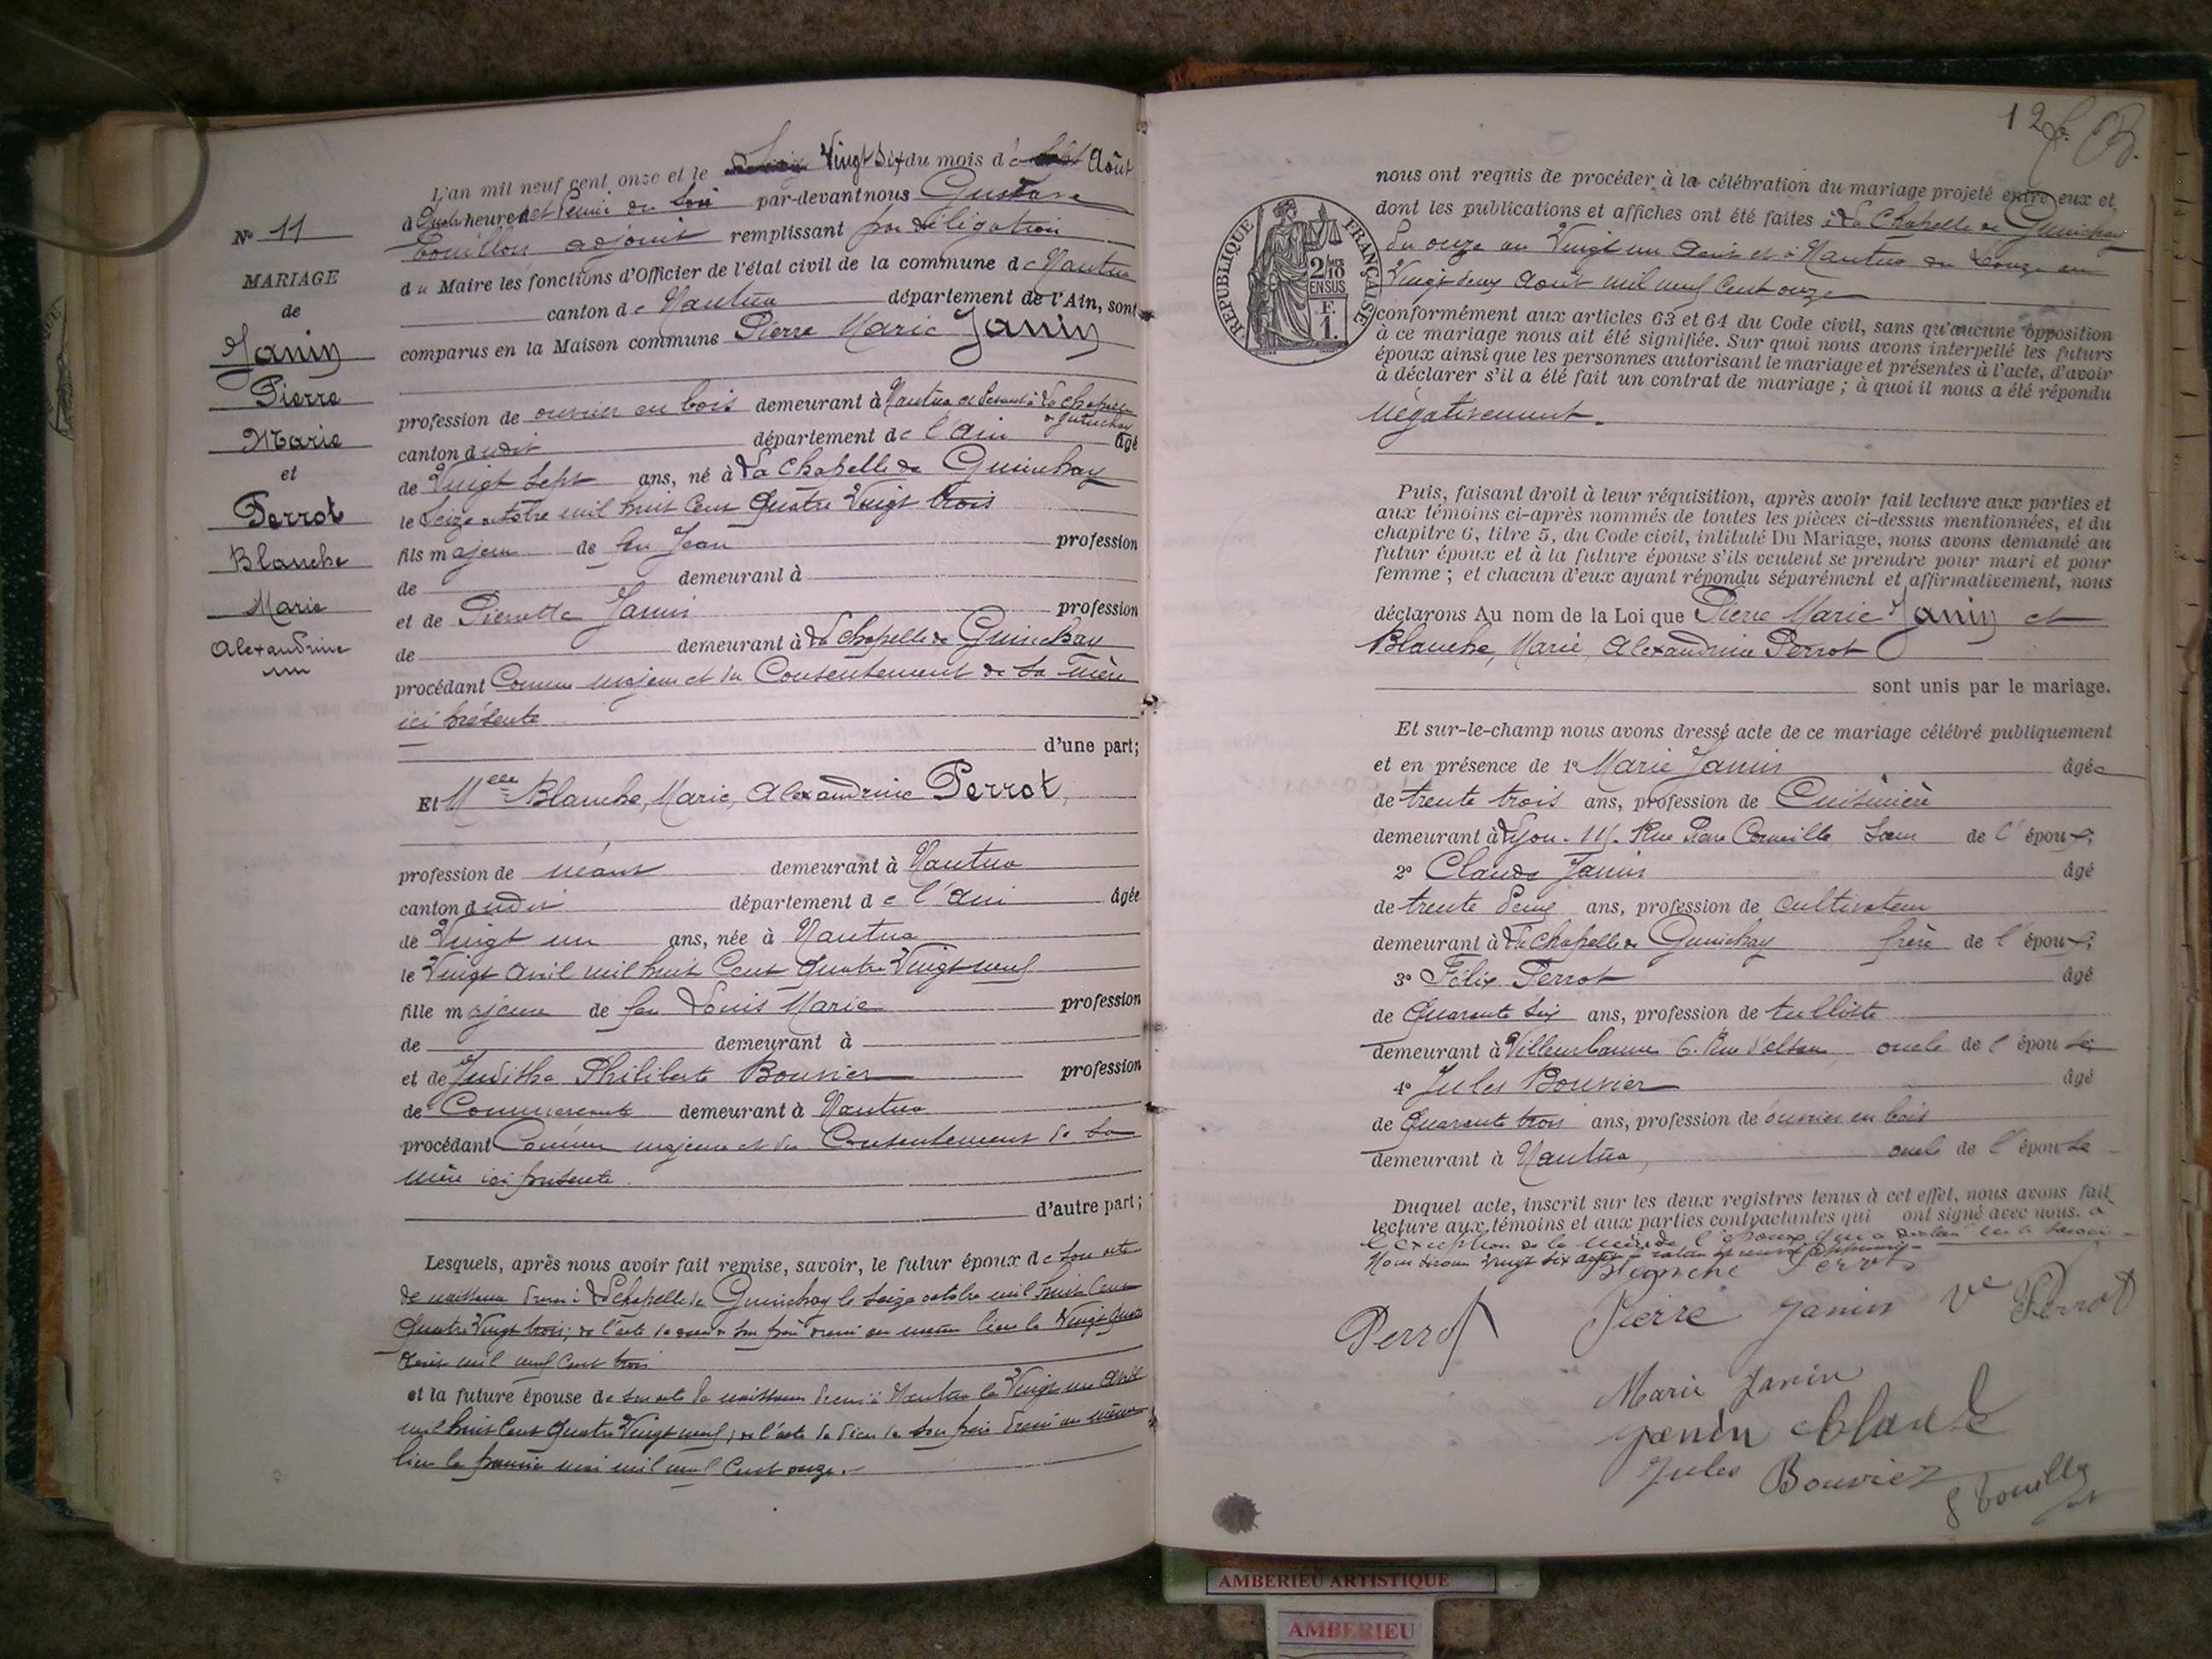 N° 11
MARIAGE
de
Janin
Pierre
Marie
et
Perrot
Blanche
Marie
Alexandrine
L'an mil neuf cent onze et le Vingt Six du mois d'Août
à quatre heures et demie du soir par-devant nous Gustave
Touillon adjoint remplissant par délégation
du Maire les fonctions d'Officier de l'état civil de la commune de Nantua
canton de Nantua département de l'Ain, sont
comparus en la Maison commune Pierre Marie Janin
profession de ouvrier en bois demeurant à Nantua et devant à La Chapelle de Guinchay
canton dudit département de l'Ain âgé
de Vingt Sept ans, né à La Chapelle de Guinchay
le Seize octobre mil huit cent quatre Vingt trois
fils majeur de feu Jean profession
de demeurant à
et de Pierrette Janin profession
de demeurant à La Chapelle de Guinchay
procédant Comme majeur et du Consentement de sa mère
ici présente
d'une part;
Et Melle Blanche, Marie, Alexandrine Perrot,
profession de néant demeurant à Nantua
canton dudit département de l'Ain âgée
de Vingt un ans, née à Nantua
le Vingt avril mil huit Cent quatre Vingt neuf
fille majeure de feu Louis Marie profession
de demeurant à
et de Judithe Philiberte Bouvier profession
de Commerçante demeurant à Nantua
procédant Comme majeure et du Consentement de sa
mère ici présente
d'autre part;
Lesquels, après nous avoir fait remise, savoir, le futur époux de son acte
de naissance dressé à La Chapelle de Guinchay le Seize octobre mil huit Cent
quatre Vingt trois; de l'acte de décès de son père dressé au même lieu le Vingt quatre
août mil neuf Cent trois
et la future épouse de son acte de naissance dressé à Nantua le Vingt un avril
mil huit Cent quatre Vingt neuf; de l'acte de décès de son père dressé au même
lieu le premier mai mil neuf Cent onze.
12
RÉPUBLIQUE FRANÇAISE
2/10 EN SUS
F. 1.
nous ont requis de procéder à la célébration du mariage projeté entre eux et
dont les publications et affiches ont été faites à La Chapelle de Guinchay
du onze au Vingt un août et à Nantua du douze au
Vingt deux août mil neuf Cent onze
conformément aux articles 63 et 64 du Code civil, sans qu'aucune opposition
à ce mariage nous ait été signifiée. Sur quoi nous avons interpellé les futurs
époux ainsi que les personnes autorisant le mariage et présentes à l'acte, d'avoir
à déclarer s'il a été fait un contrat de mariage; à quoi il nous a été répondu
négativement.
Puis, faisant droit à leur réquisition, après avoir fait lecture aux parties et
aux témoins ci-après nommés de toutes les pièces ci-dessus mentionnées, et du
chapitre 6, titre 5, du Code civil, intitulé Du Mariage, nous avons demandé au
futur époux et à la future épouse s'ils veulent se prendre pour mari et pour
femme; et chacun d'eux ayant répondu séparément et affirmativement, nous
déclarons Au nom de la Loi que Pierre Marie Janin et
Blanche, Marie, Alexandrine Perrot
sont unis par le mariage.
Et sur-le-champ nous avons dressé acte de ce mariage célébré publiquement
et en présence de 1° Marie Janin âgée
de trente trois ans, profession de Cuisinière
demeurant à Lyon. Rue Pierre Corneille Soeur de l'époux;
2° Claude Janin âgé
de trente deux ans, profession de cultivateur
demeurant à La Chapelle de Guinchay frère de l'époux;
3° Félix Perrot âgé
de Quarante Six ans, profession de tulliste
demeurant à Villeurbanne 6. Rue oncle de l'épouse;
4° Jules Bouvier âgé
de Quarante trois ans, profession de ouvrier en bois
demeurant à Nantua, oncle de l'épouse
Duquel acte, inscrit sur les deux registres tenus à cet effet, nous avons fait
lecture aux témoins et aux parties contractantes qui ont signé avec nous. à
l'exception de la mère de l'époux qui a déclaré ne le savoir
Nous disons Vingt six août
Blanche Perrot
Perrot Pierre Janin Ve Perrot
Marie Janin
Janin Claude
Jules Bouvier
G Touillon
AMBERIEU ARTISTIQUE
AMBERIEU